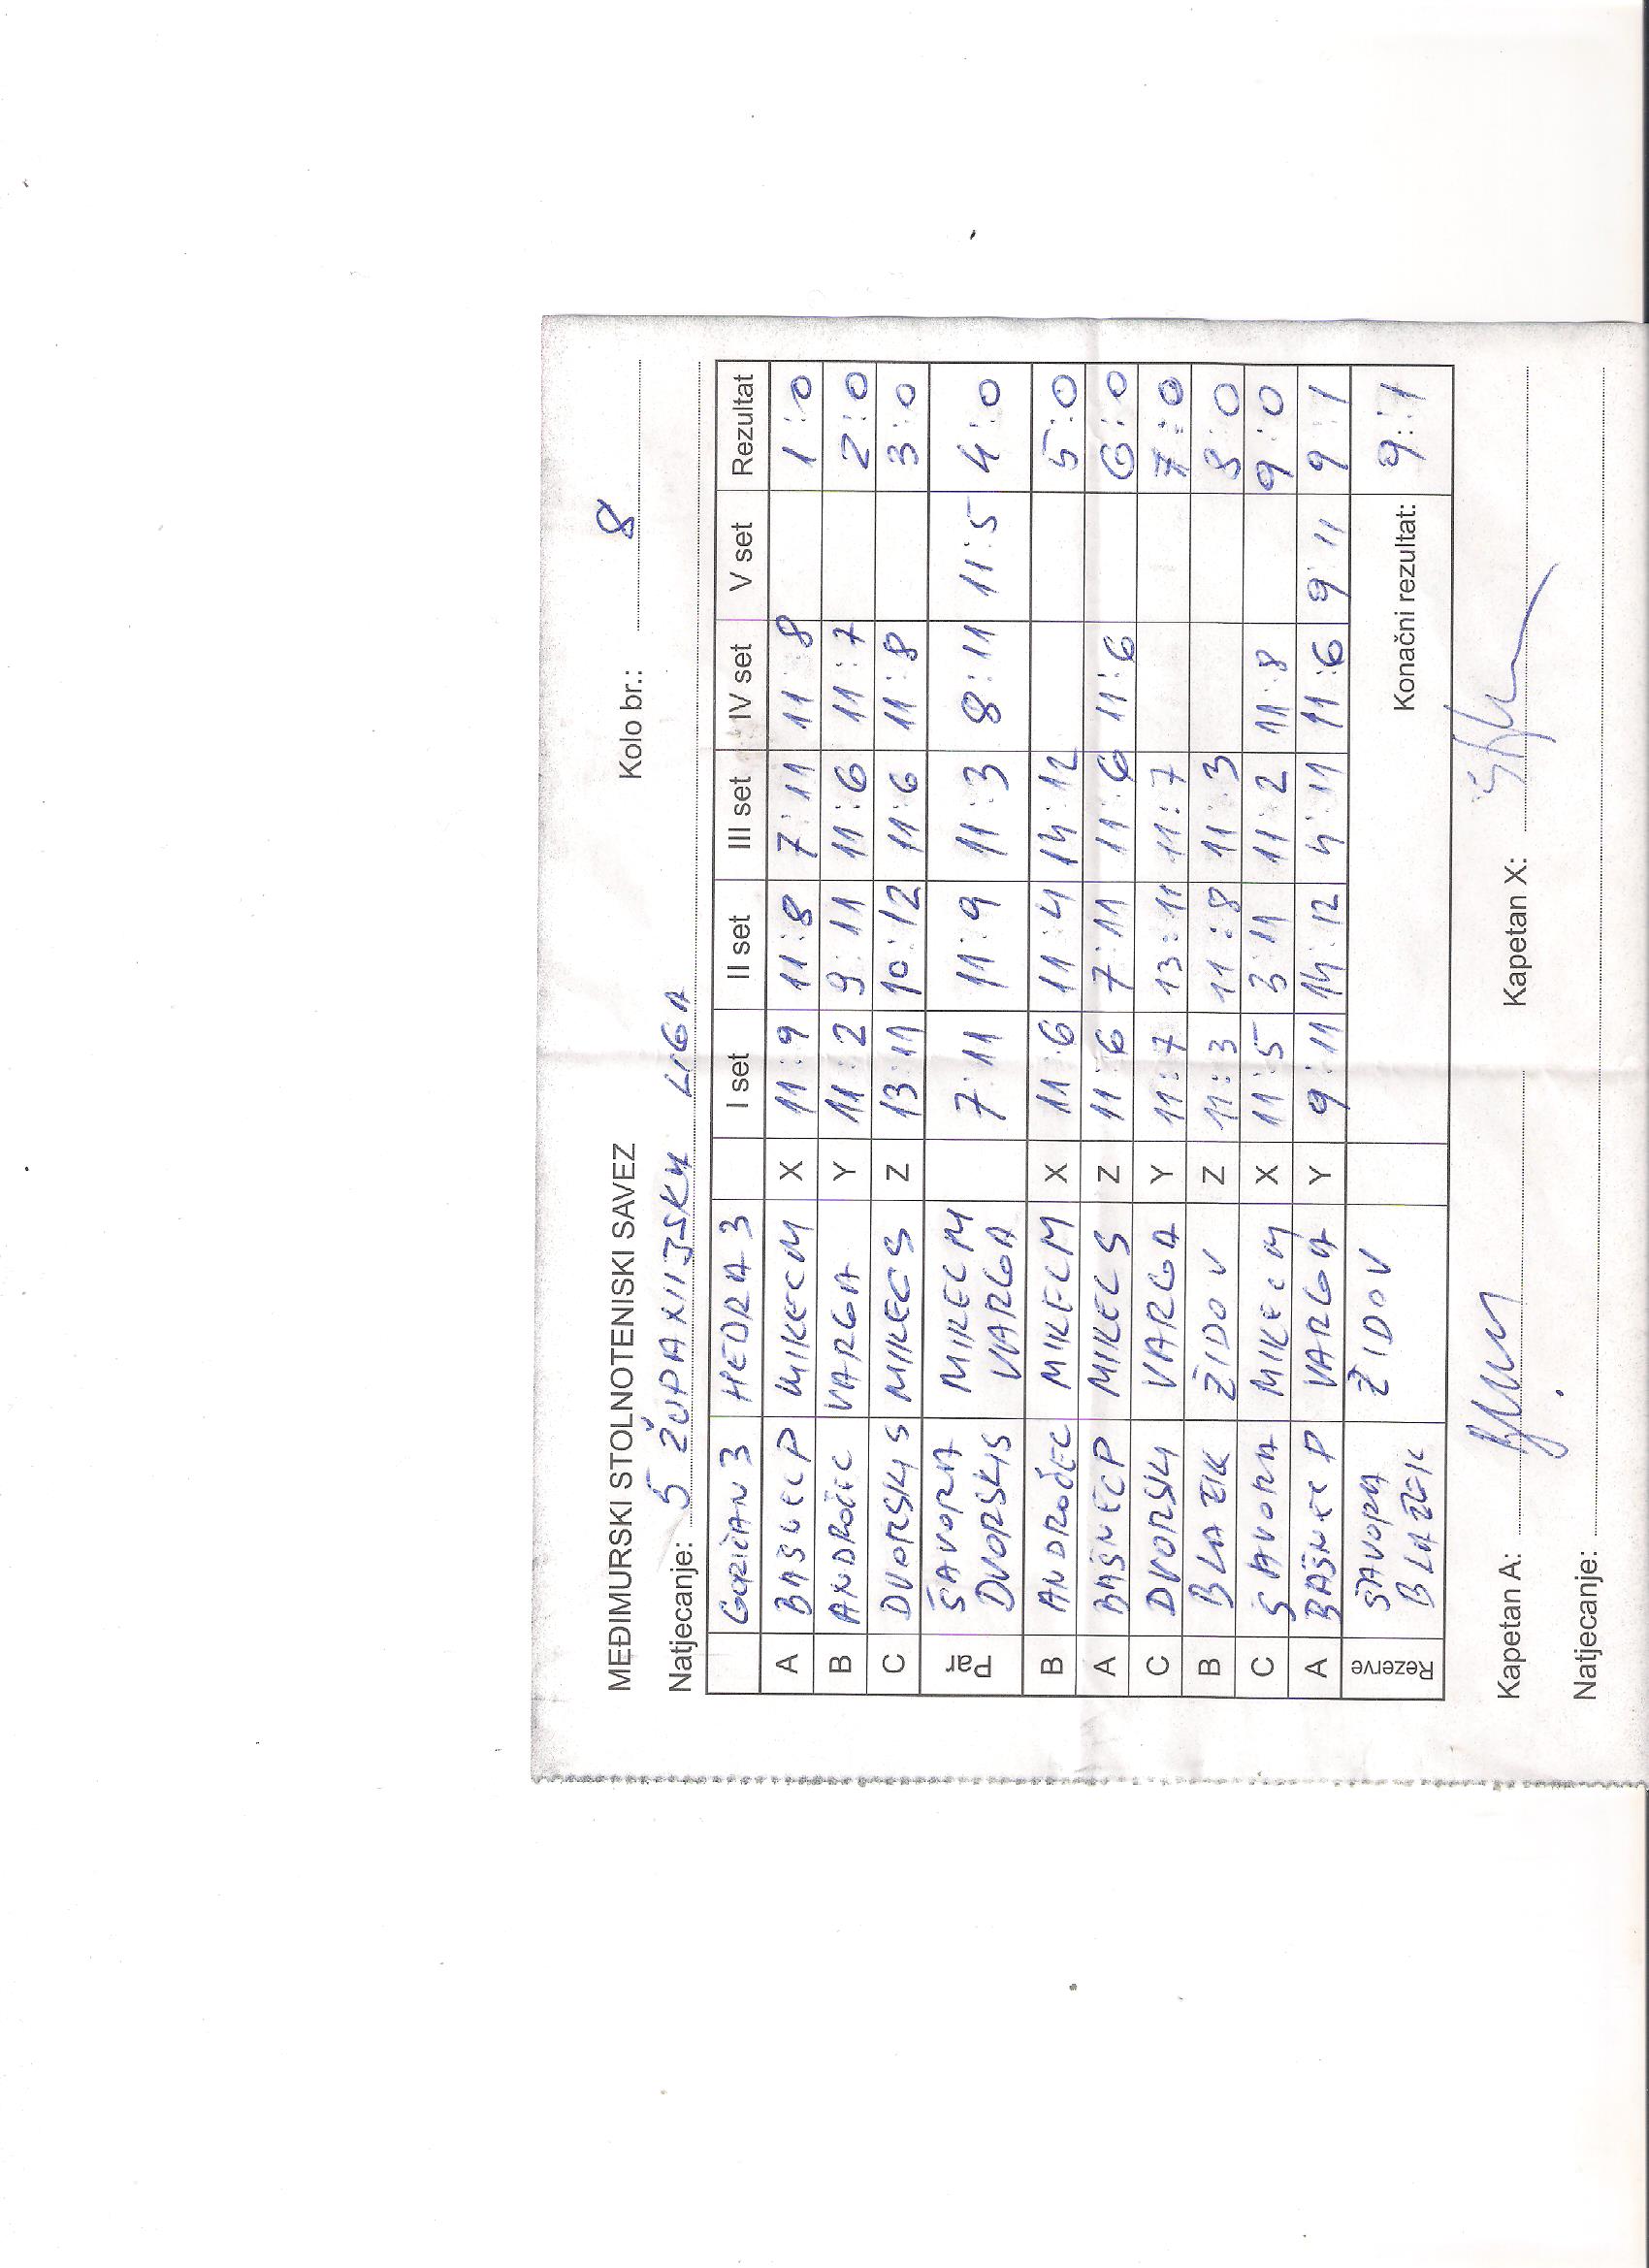 MEĐIMURSKI STOLNOTENISKI SAVEZ
Natjecanje: 5 ŽUPANIJSKA LIGA Kolo br.: 8
GORIČAN 3 HEDRA 3 I set II set III set IV set V set Rezultat
A BAŠNEC P MIKEC M X 11:9 11:8 7:11 11:8 1:0
B ANDROČEC VARGA Y 11:2 9:11 11:6 11:7 2:0
C DVORSKI S MIKEC S Z 13:11 10:12 11:6 11:8 3:0
Par ŠAVORA MIKEC M 7:11 11:9 11:3 8:11 11:5 4:0
DVORSKI S VARGA
B ANDROČEC MIKEC M X 11:6 11:4 14:12 5:0
A BAŠNEC P MIKEC S Z 11:6 7:11 11:6 11:6 6:0
C DVORSKI VARGA Y 11:7 13:11 11:7 7:0
B BLAŽEK ŽIDOV Z 11:3 11:8 11:3 8:0
C ŠAVORA MIKEC M X 11:5 3:11 11:2 11:8 9:0
A BAŠNEC P VARGA Y 9:11 14:12 4:11 11:6 9:11 9:1
Rezerve ŠAVORA ŽIDOV Konačni rezultat: 9:1
BLAŽEK
Kapetan A: Kapetan X:
Natjecanje: